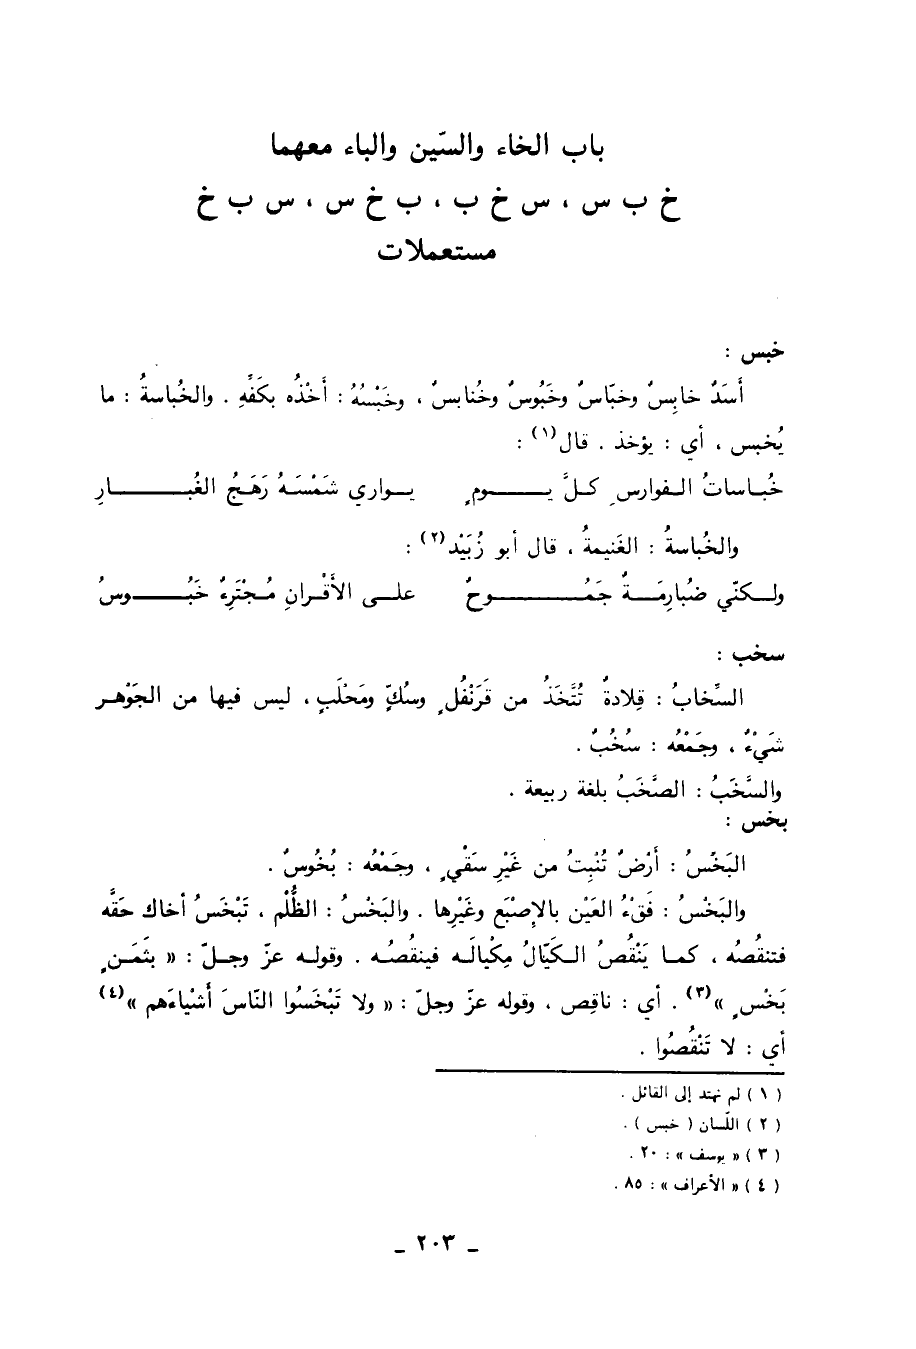 باب الخاء والسّين والباء معهما
خ ب س ، س خ ب ، ب خ س ، س ب خ
مستعملات
خبس :
أَسَدٌ خابِسٌ وخبّاسٌ وخَبُوسٌ وخُنابسٌ ، وخَبْسُهُ : أَخْذُه بكَفِّهِ . والخُباسةُ : ما
يُخبس ، أي : يؤخذ . قال(١) :
خُباساتُ الفوارسِ كلَّ يومٍ يواري شَمْسَهُ رَهَجُ الغُبارِ
والخُباسةُ : الغَنيمةُ ، قال أبو زُبَيْد(٢) :
ولكنّي ضُبارِمَةٌ جَمُوحٌ على الأَقْرانِ مُجْتَرِءٌ خَبُوسُ
سخب :
السِّخابُ : قِلادةٌ تُتَّخَذُ من قَرَنْفُلٍ وسُكٍّ ومَحْلَبٍ ، ليس فيها من الجَوْهر
شَيْءٌ ، وجَمْعُه : سُخُبٌ .
والسَّخَبُ : الصَّخَبُ بلغة ربيعة .
بخس :
البَخْسُ : أَرْضٌ تُنْبِتُ من غَيْرِ سَقْيٍ ، وجَمْعُه : بُخُوسٌ .
والبَخْسُ : فَقْءُ العَيْن بالإصْبَع وغَيْرِها . والبَخْسُ : الظُّلْم ، تَبْخَسُ أخاك حَقَّه
فتنقُصُه ، كما يَنْقُصُ الكَيّالُ مِكْيالَه فينقُصُه . وقوله عزّ وجلّ : « بثَمَنٍ
بَخْسٍ »(٣) . أي : ناقِص ، وقوله عزّ وجلّ : « ولا تَبْخَسُوا النّاسَ أَشْياءَهم »(٤)
أي : لا تَنْقُصُوا .
( ١ ) لم نهتد إلى القائل .
( ٢ ) اللّسان ( خبس ) .
( ٣ ) « يوسف » : ٢٠ .
( ٤ ) « الأعراف » : ٨٥ .
ـ ٢٠٣ ـ